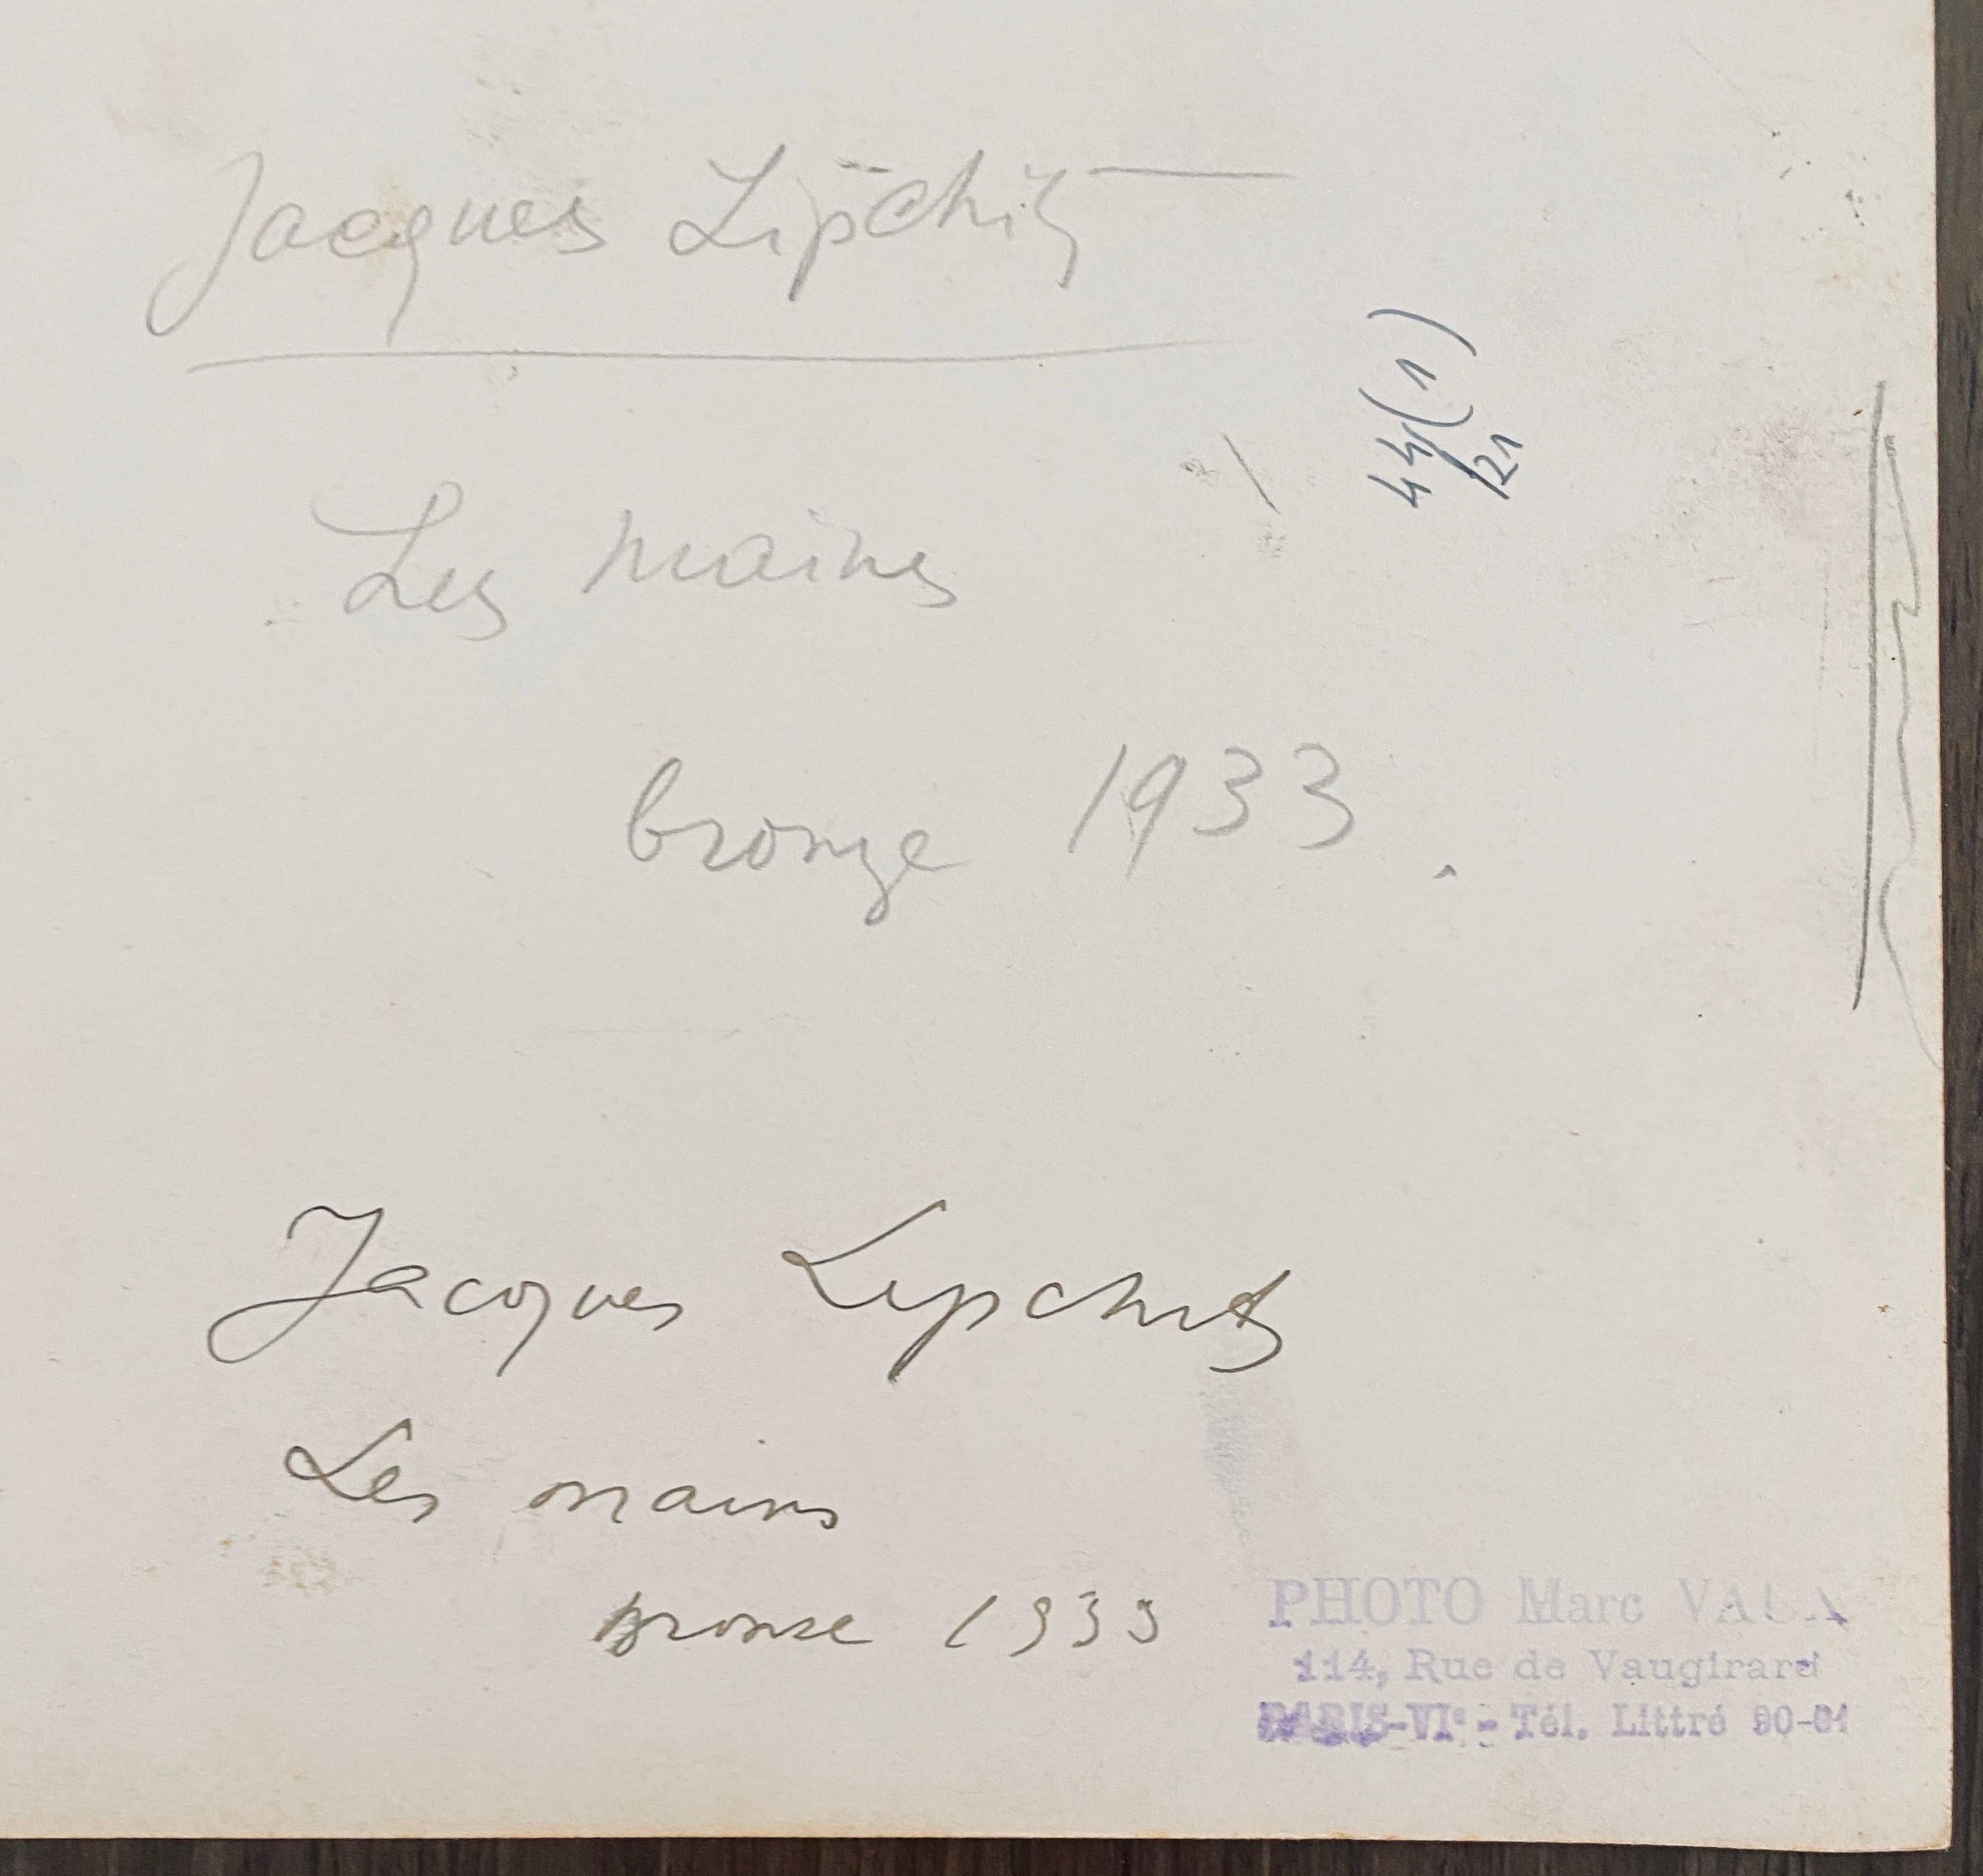 Jacques Lipchitz
44(1)
/21
Les mains
bronze 1933.
Jacques Lipchitz
Les mains
Bronze 1933
PHOTO Marc VAUX
114, Rue de Vaugirard
PARIS-VIe - Tél. Littré 90-81